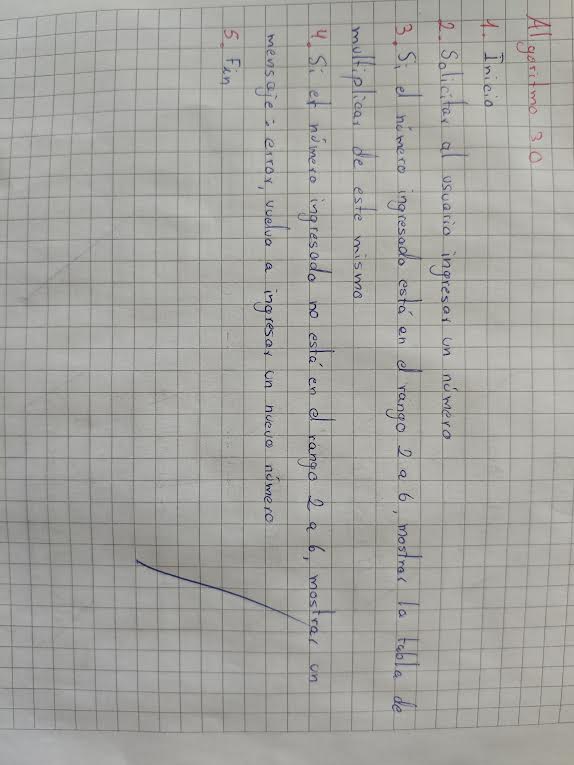 Algoritmo 3.0
1. Inicio
2. Solicitar al usuario ingresar un número
3. Si el número ingresado está en el rango 2 a 6, mostrar la tabla de
multiplicar de este mismo
4. Si el número ingresado no está en el rango 2 a 6, mostrar un
mensaje: error, vuelva a ingresar un nuevo número
5. Fin